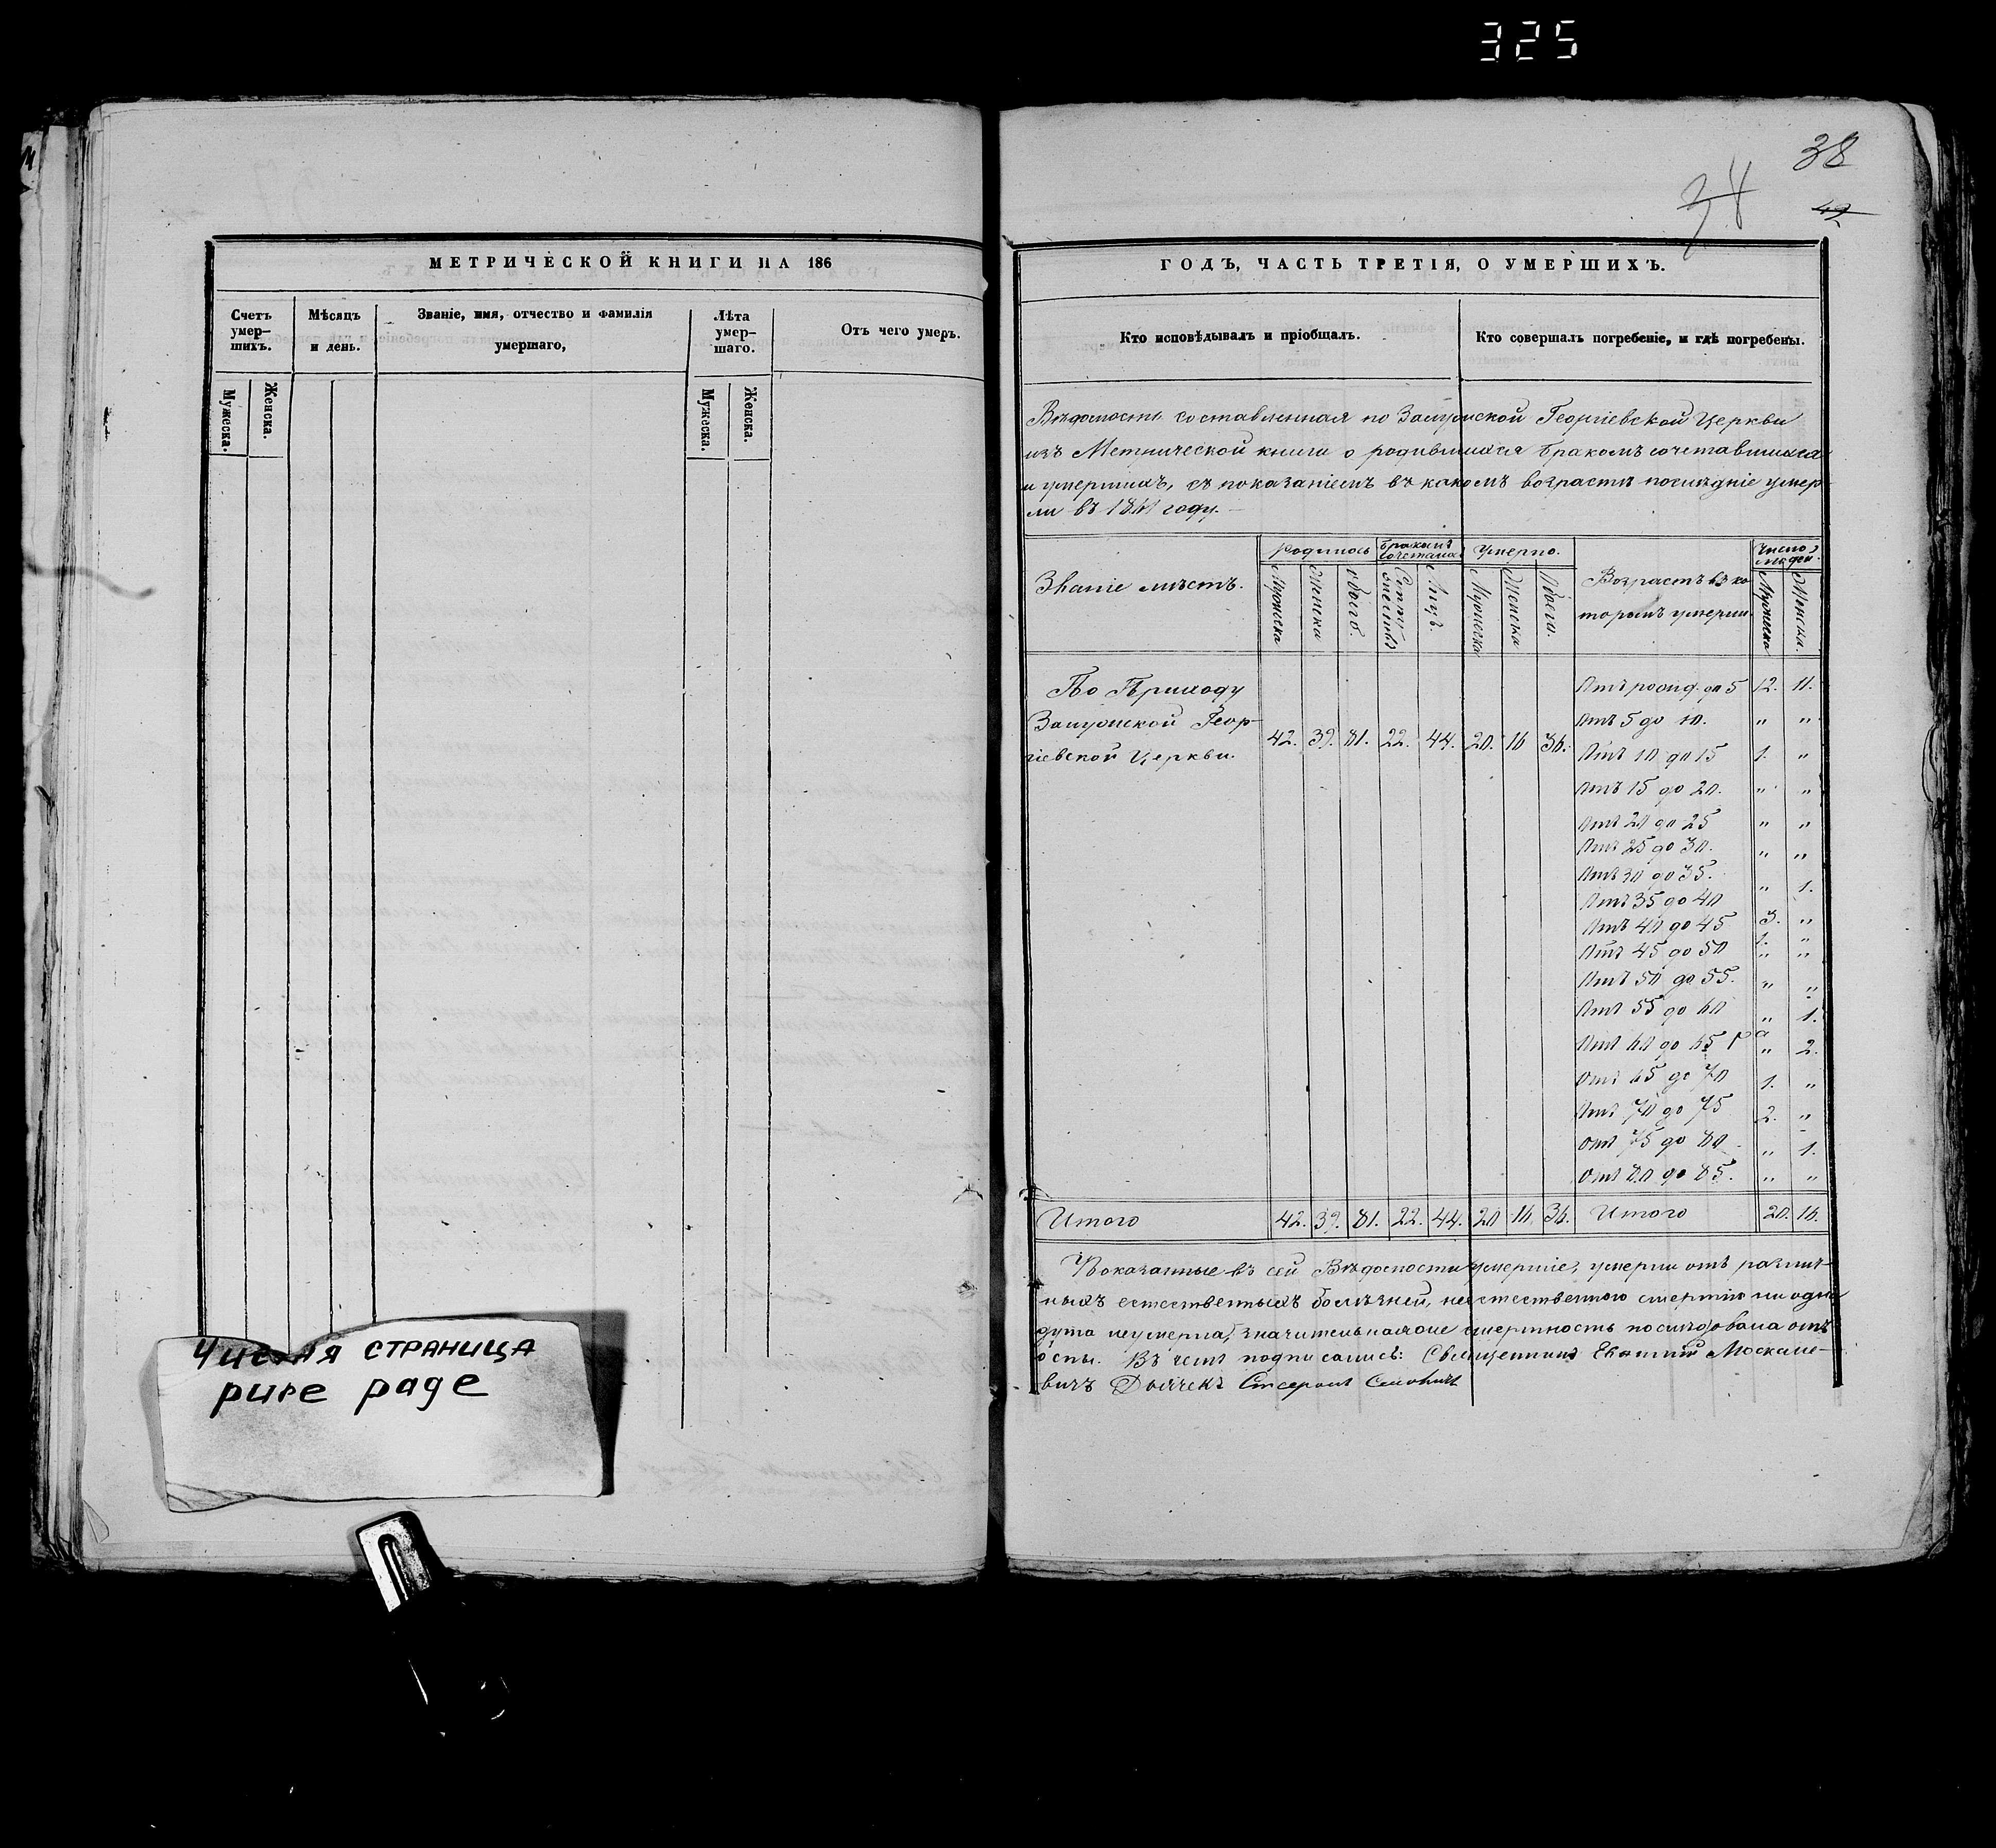 325
38
34
42
МЕТРИЧЕСКОЙ КНИГИ НА 186
Счетъ умер-
шихъ.
Мѣсяцъ
и день.
Званіе, имя, отчество и фамилія
умершаго,
Лѣта
умер-
шаго.
Отъ чего умеръ.
Мужеска.
Женска.
Мужеска.
Женска.
Чистая страница
pure page
ГОДЪ, ЧАСТЬ ТРЕТІЯ, О УМЕРШИХЪ.
Кто исповѣдывалъ и пріобщалъ.
Кто совершалъ погребеніе, и гдѣ погребены.
Вѣдомость составленная по Замужской Георгіевской Церкви
изъ Метрической книги о родившихся бракомъ сочетавшихся
и умершихъ, съ показаніемъ въ какомъ возрастѣ послѣдніе умер-
ли въ 1861 году.
Званіе мѣстъ.
родилось
Бракомъ
сочеталось
Умерло.
Возрастъ въ ко
торомъ умерли
Число
людей.
Мужеска
Женска
Обоего.
Супру
жествъ
Лицъ.
Мужеска
Женска
Обоего.
Мужеска
Женска.
По Приходу
Замужской Геор-
гіевской Церкви.
42. 39. 81. 22. 44. 20. 16 36.
Отъ рожд. до 5 12. 11.
Отъ 5 до 10. " "
Отъ 10 до 15 1. "
Отъ 15 до 20. " "
Отъ 20 до 25 " "
Отъ 25 до 30. " "
Отъ 30 до 35. " 1.
Отъ 35 до 40 3. "
Отъ 40 до 45 1. "
Отъ 45 до 50 " "
Отъ 50 до 55. " "
Отъ 55 до 60 " 1.
Отъ 60 до 65 " 2.
Отъ 65 до 70 1. "
Отъ 70 до 75 2. "
Отъ 75 до 80 " 1.
Отъ 80 до 85. " "
Итого 42. 39. 81. 22. 44. 20 16. 36. Итого 20. 16.
Показанные въ сей Вѣдомости умершіе, умерли отъ различ-
ныхъ естественныхъ болѣзней, неестественною смертію ни одна
душа не умерла, значительнаяже смертность послѣдовала отъ
оспы. Въ чемъ подписались: Священникъ Москале-
вичъ